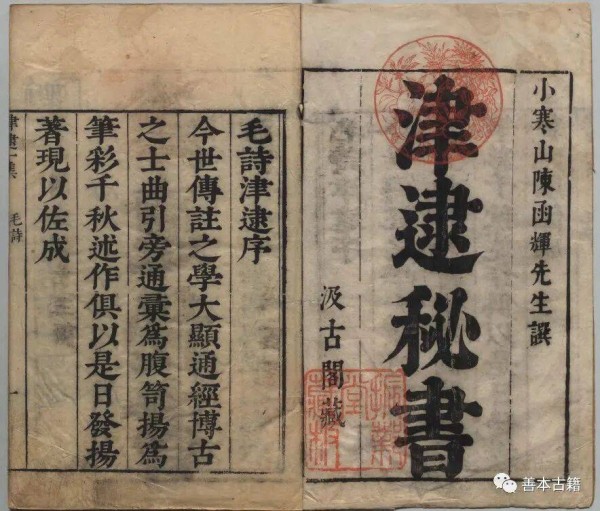 小寒山陳函輝先生譔
津逮秘書
汲古閣藏
毛詩津逮序
今世傳註之學大顯通經博古
之士曲引旁通彙為腹笥揚為
筆彩千秋述作俱以是日發揚
著現以佐成
津逮一集 毛詩
一
善本古籍